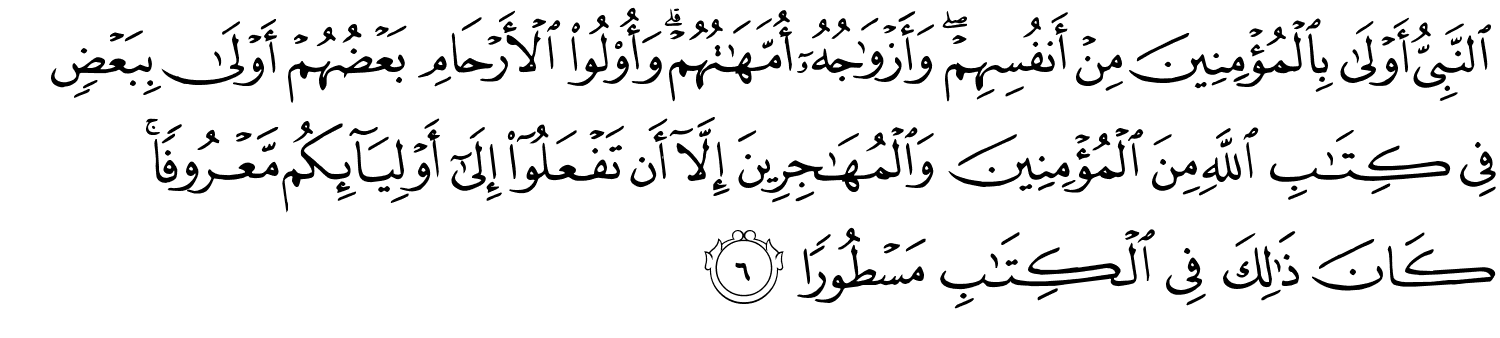 ٱلنَّبِىُّ أَوْلَىٰ بِٱلْمُؤْمِنِينَ مِنْ أَنفُسِهِمْ ۖ وَأَزْوَٰجُهُۥٓ أُمَّهَـٰتُهُمْ ۗ وَأُو۟لُوا۟ ٱلْأَرْحَامِ بَعْضُهُمْ أَوْلَىٰ بِبَعْضٍ
فِى كِتَـٰبِ ٱللَّهِ مِنَ ٱلْمُؤْمِنِينَ وَٱلْمُهَـٰجِرِينَ إِلَّآ أَن تَفْعَلُوٓا۟ إِلَىٰٓ أَوْلِيَآئِكُم مَّعْرُوفًا ۚ
كَانَ ذَٰلِكَ فِى ٱلْكِتَـٰبِ مَسْطُورًا ٦